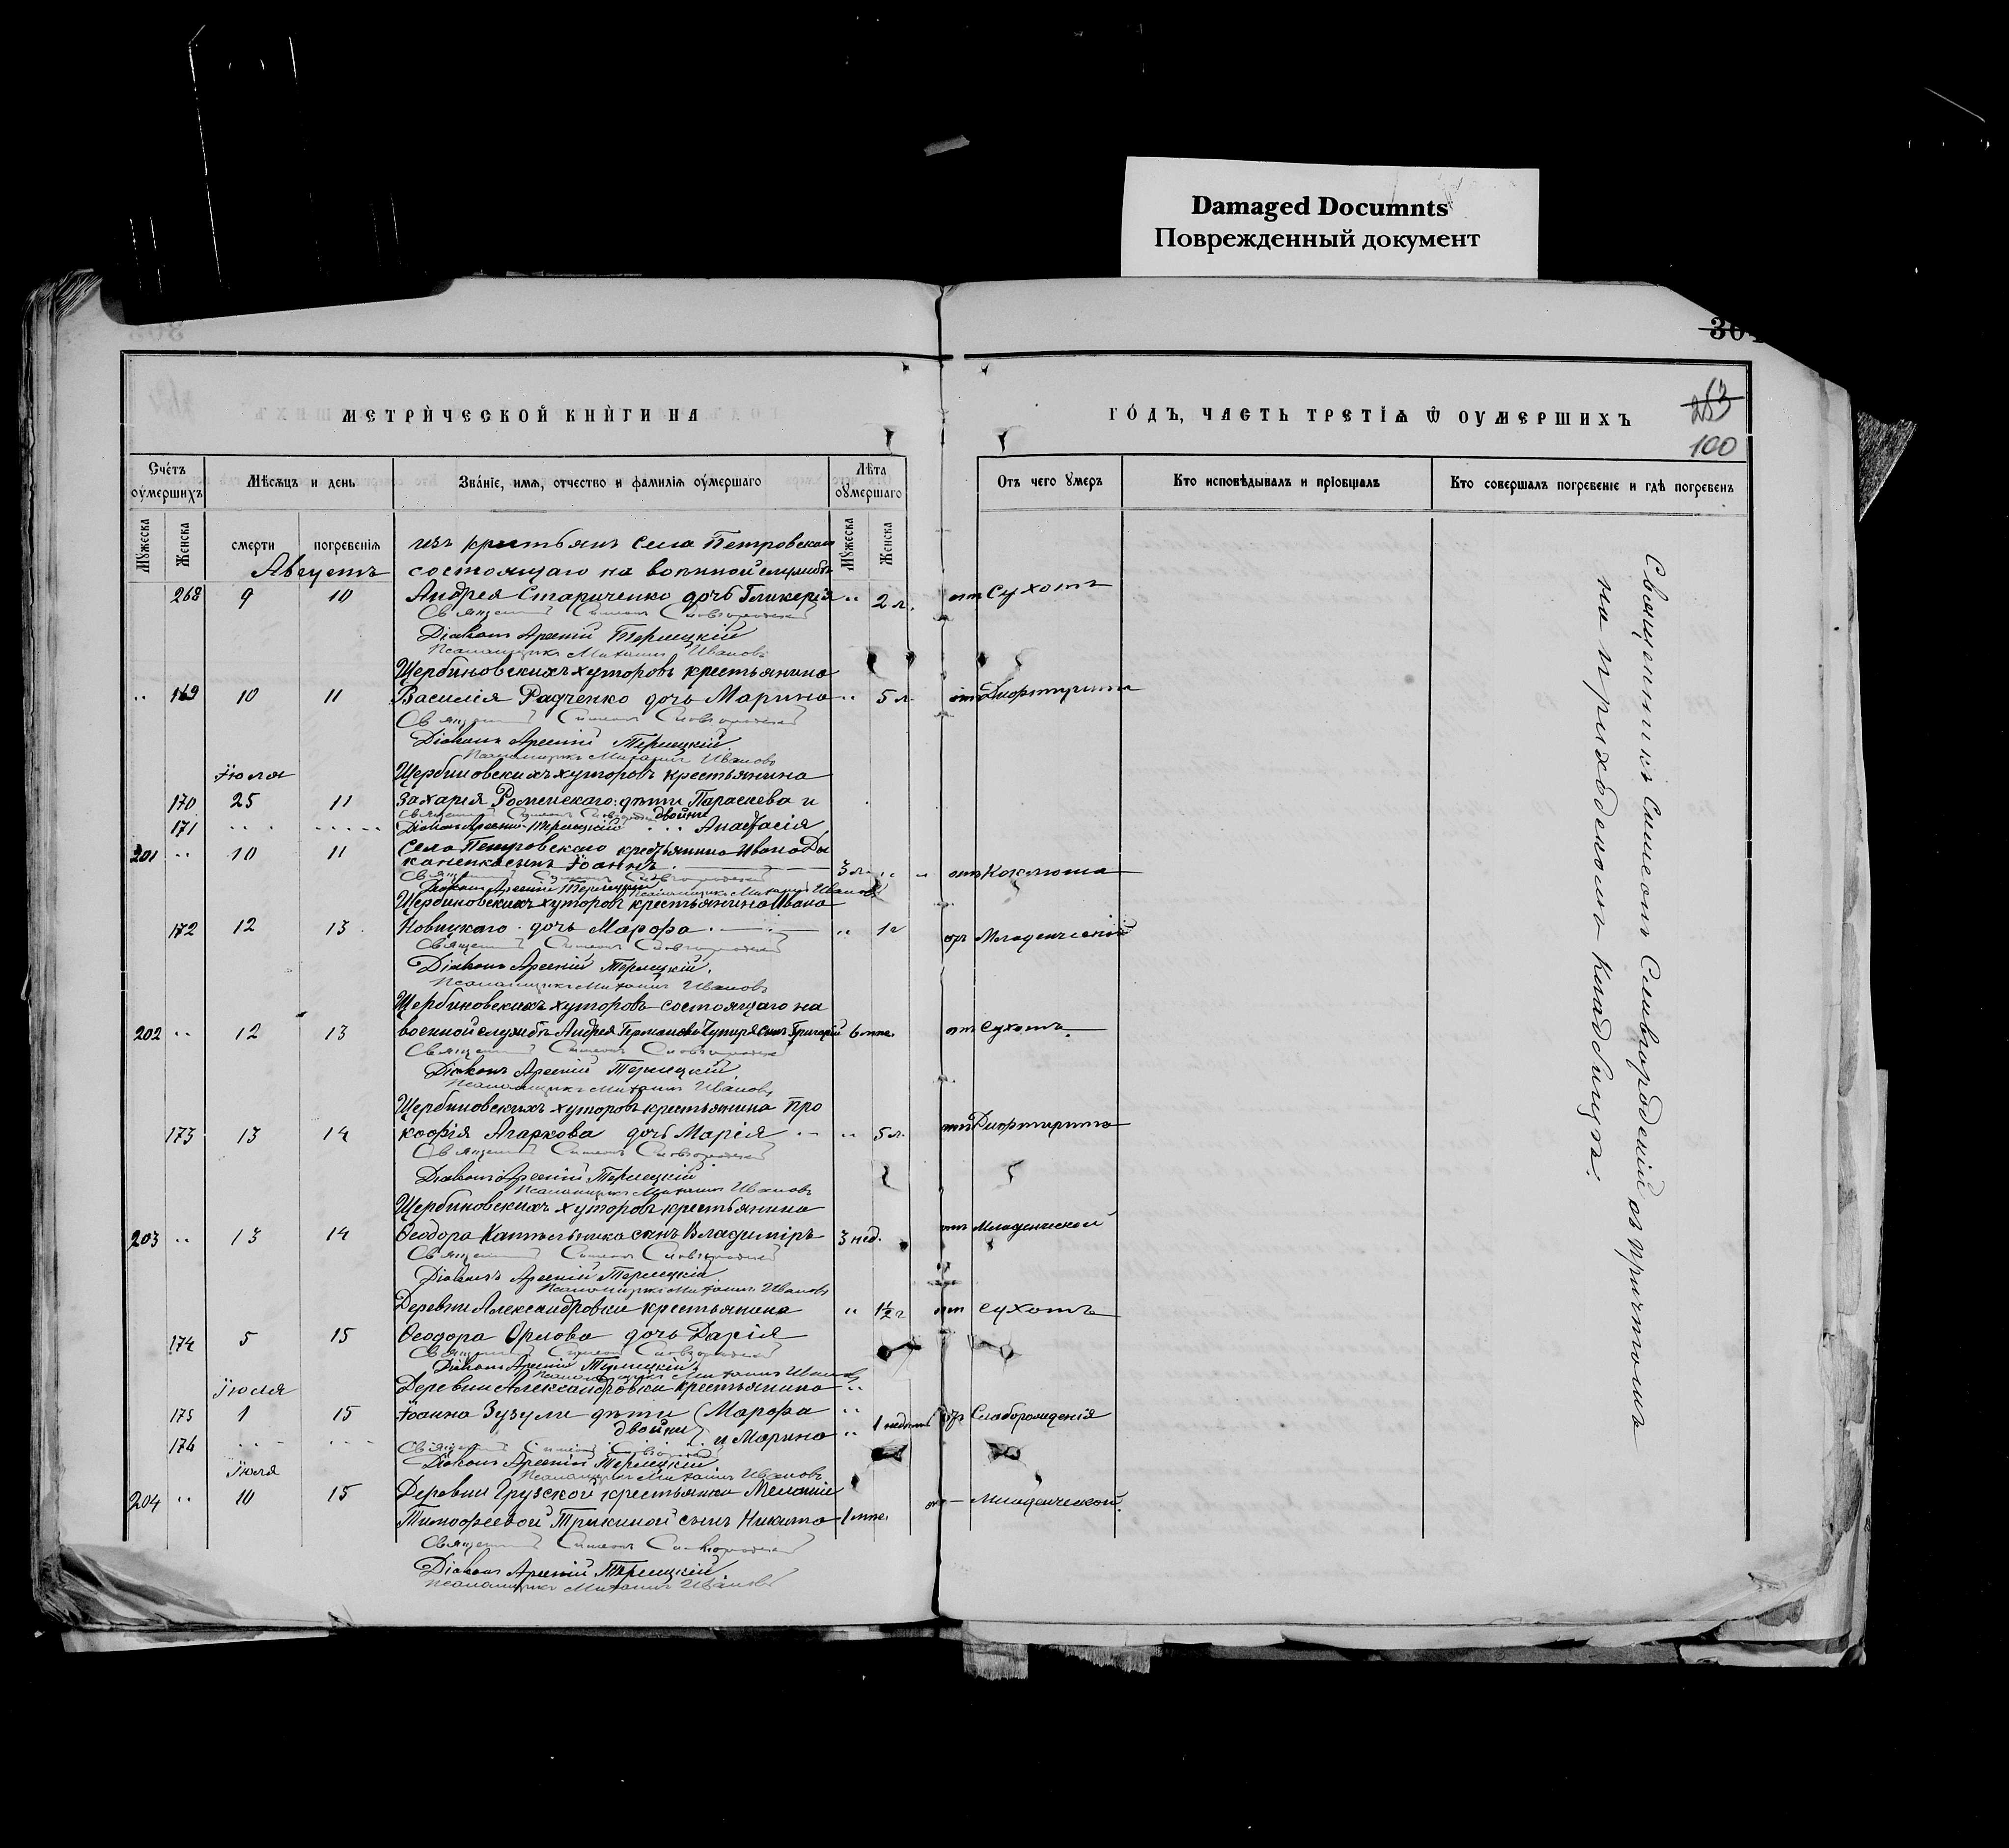 Damaged Documnts
Поврежденный документ
253
100
МЕТРИ́ЧЕСКОЙ КНИ́ГИ НА
ГО́ДЪ, ЧАСТЬ ТРЕТІѦ Ѿ ОУМЕРШИХЪ
Сче́тъ оу́мершихъ
Мѣсѧцъ и день
Зва́нїе, имѧ, отчество и фамилїѧ оу́мершаго
Лѣта оу́мершаго
Отъ чего умеръ
Кто исповѣдывалъ и прїобщалъ
Кто совершалъ погребенїе и гдѣ погребенъ
Мужеска
Женска
смерти
погребенїѧ
Мужеска
Женска
изъ крестьянъ села Петровскаго
Августъ состоящаго на военной службѣ
268 9 10 Андрея Стариченко дочь Гликерія " 2 л. отъ Сухотъ
Священникъ Симеонъ Сливгородскій
Діаконъ Арсеній Терлецкій
Псаломщикъ Михаилъ Ивановъ
Щербиновскихъ хуторовъ крестьянина
" 169 10 11 Василія Радченко дочь Марина " 5 л. отъ Дифтерита
Священникъ Симеонъ Сливгородскій
Діаконъ Арсеній Терлецкій
Псаломщикъ Михаилъ Ивановъ
Іюля Щербиновскихъ хуторовъ крестьянина
170 25 11 Захарія Роменскаго дѣти Параскева и
Священникъ Симеонъ Сливгородскій двойни
171 Діаконъ Арсеній Терлецкій Анастасія
201 " 10 11 Села Петровскаго крестьянина Ивана Ды
каненка сынъ Іоаннъ 3 л. " отъ Коклюша
Священникъ Симеонъ Сливгородскій
Діаконъ Арсеній Терлецкій
Псаломщикъ Михаилъ Ивановъ
Щербиновскихъ хуторовъ крестьянина Ивана
172 12 13 Новицкаго дочь Марфа " 1 г отъ Младенческой
Священникъ Симеонъ Сливгородскій
Діаконъ Арсеній Терлецкій.
Псаломщикъ Михаилъ Ивановъ
Щербиновскихъ хуторовъ состоящаго на
202 " 12 13 военной службѣ Андрея Германова сынъ Григорій 6 мце. отъ Сухотъ
Священникъ Симеонъ Сливгородскій
Діаконъ Арсеній Терлецкій
Псаломщикъ Михаилъ Ивановъ
Щербиновскихъ хуторовъ крестьянина Про
173 13 14 кофія Агаркова дочь Марія " 5 л. отъ Дифтерита
Священникъ Симеонъ Сливгородскій
Діаконъ Арсеній Терлецкій
Псаломщикъ Михаилъ Ивановъ
Щербиновскихъ хуторовъ крестьянина
203 " 13 14 Ѳеодора Котельника сынъ Владиміръ 3 нед. отъ Младенческой
Священникъ Симеонъ Сливгородскій
Діаконъ Арсеній Терлецкій
Псаломщикъ Михаилъ Ивановъ
Деревни Александровки крестьянина " 1½ г отъ Сухотъ
174 5 15 Ѳеодора Орлова дочь Дарія
Священникъ Симеонъ Сливгородскій
Діаконъ Арсеній Терлецкій
Псаломщикъ Михаилъ Ивановъ
Іюля Деревни Александровки крестьянина "
175 1 15 Іоанна Зузули дѣти Марфа "
174 двойни и Марина " 1 отъ Слаборожденія
Священникъ Симеонъ Сливгородскій
Діаконъ Арсеній Терлецкій
Іюля Псаломщикъ Михаилъ Ивановъ
204 " 10 15 Деревни Грузской крестьянки Меланіи отъ Младенческой.
Тимофеевой Трикиной сынъ Никита 1 мце.
Священникъ Симеонъ Сливгородскій
Діаконъ Арсеній Терлецкій
Псаломщикъ Михаилъ Ивановъ
Священникъ Симеонъ Сливгородскій съ причтомъ
на приходскомъ кладбищѣ.